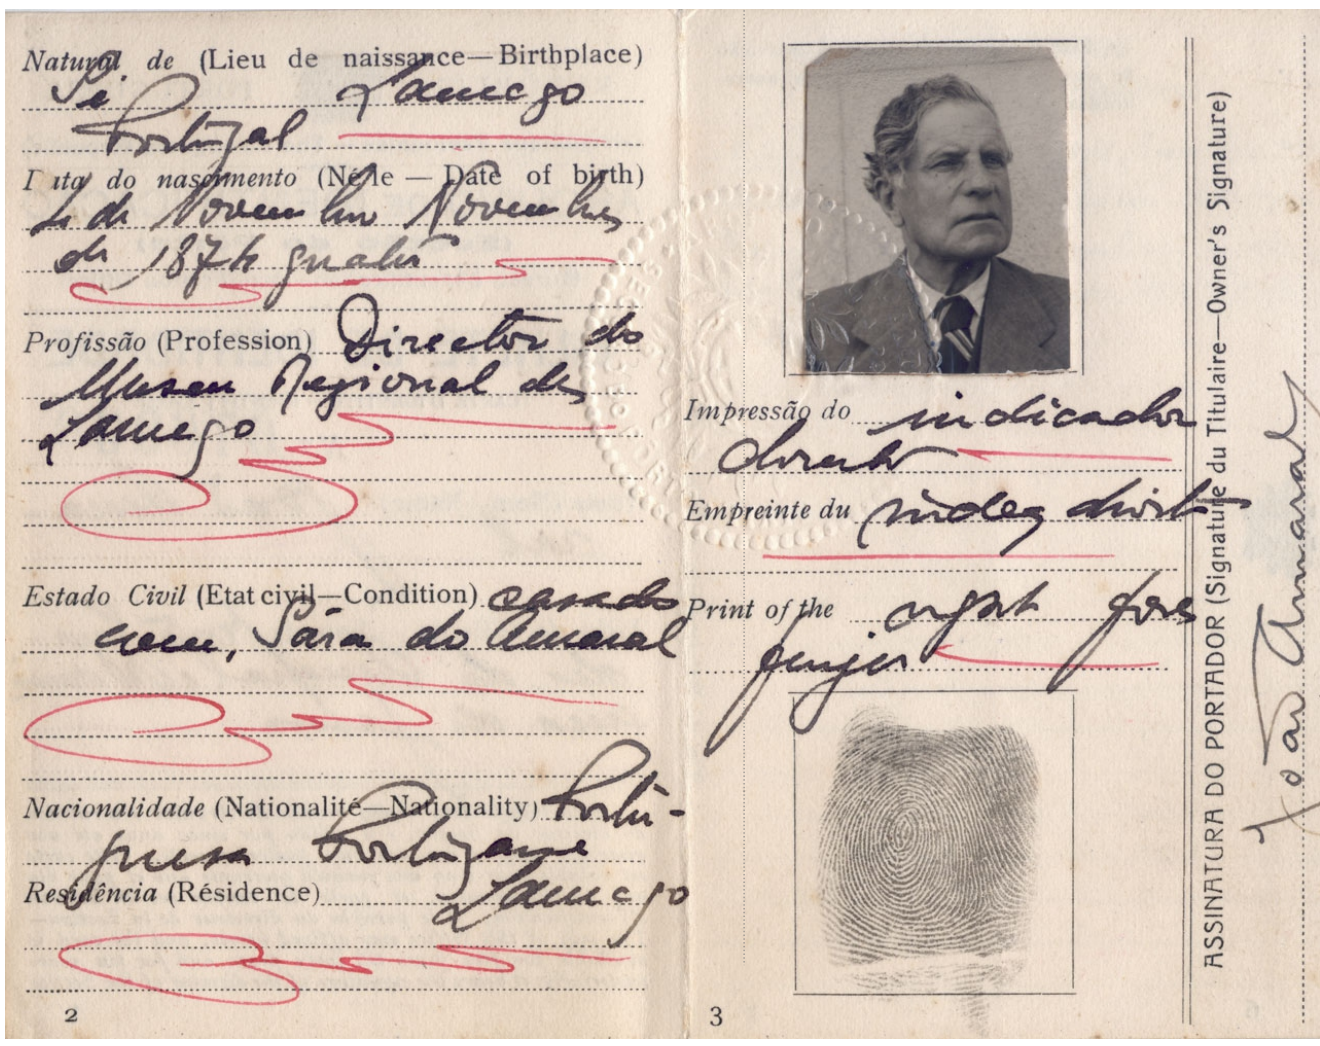 Natural de (Lieu de naissance—Birthplace)
Sé Lamego
Portugal
Data do nascimento (Né le — Date of birth)
4 de Novembro Novembre
de 1874
Profissão (Profession) Director do
Museu Regional de
Lamego
Estado Civil (Etat civil—Condition) casado
com, Sára do Amaral
Nacionalidade (Nationalité—Nationality) Portu-
guesa Portugaise
Residência (Résidence)
Lamego
2
Impressão do indicador
direito
Empreinte du index droit
Print of the right fore
finger
3
ASSINATURA DO PORTADOR (Signature du Titulaire—Owner's Signature)
João Amaral